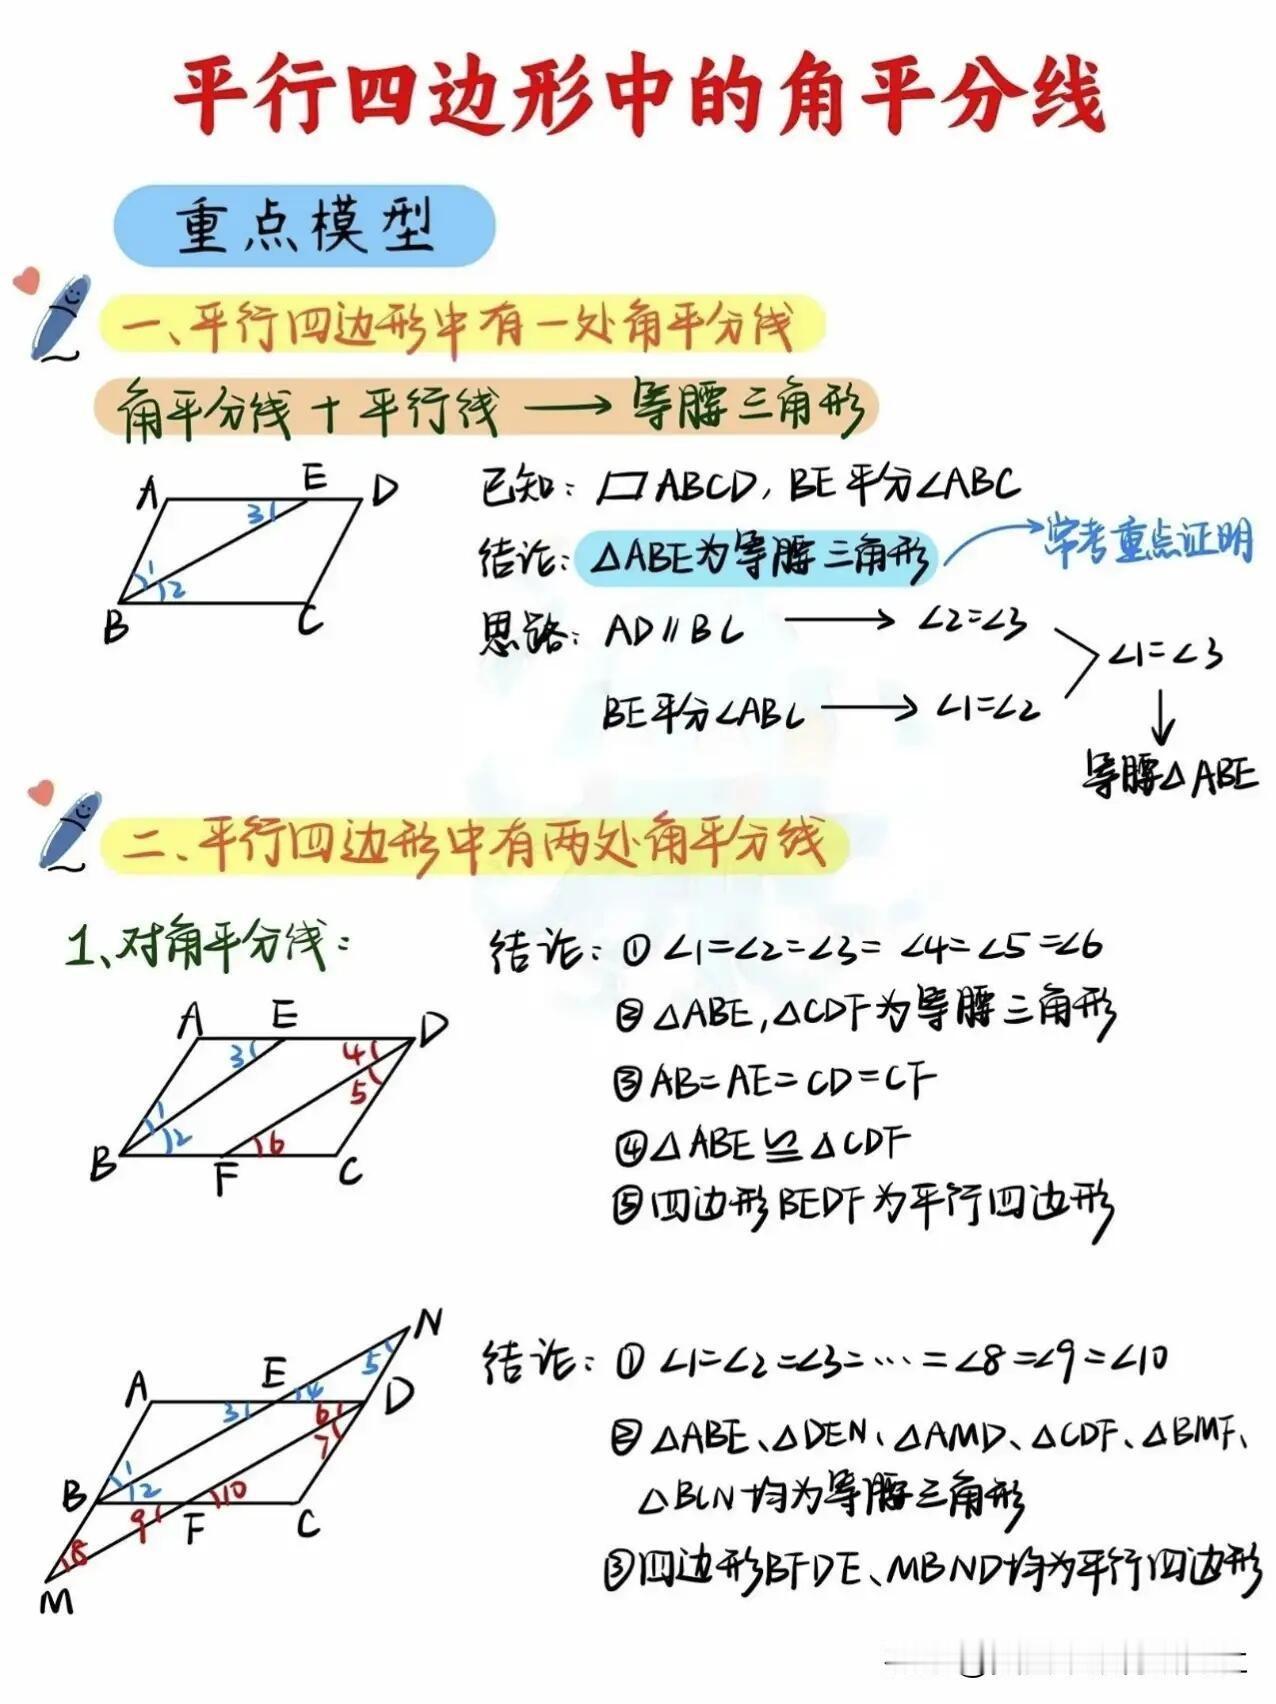 平行四边形中的角平分线
重点模型
一、平行四边形中有一处角平分线
角平分线+平行线→等腰三角形
A E D
3
1
2
B C
已知：▱ABCD，BE平分∠ABC
结论：△ABE为等腰三角形→常考重点证明
思路：AD∥BC→∠2=∠3
∠1=∠3
BE平分∠ABC→∠1=∠2
等腰△ABE
二、平行四边形中有两处角平分线
1、对角平分线：
A E D
3 4
5
1
2 6
B F C
结论：①∠1=∠2=∠3=∠4=∠5=∠6
②△ABE，△CDF为等腰三角形
③AB=AE=CD=CF
④△ABE≌△CDF
⑤四边形BEDF为平行四边形
N
5
A E 4 D
3 6
7
1
B 2 10
9 F C
8
M
结论：①∠1=∠2=∠3=…=∠8=∠9=∠10
②△ABE、△DEN、△AMD、△CDF、△BMF、
△BCN均为等腰三角形
③四边形BFDE、MBND均为平行四边形